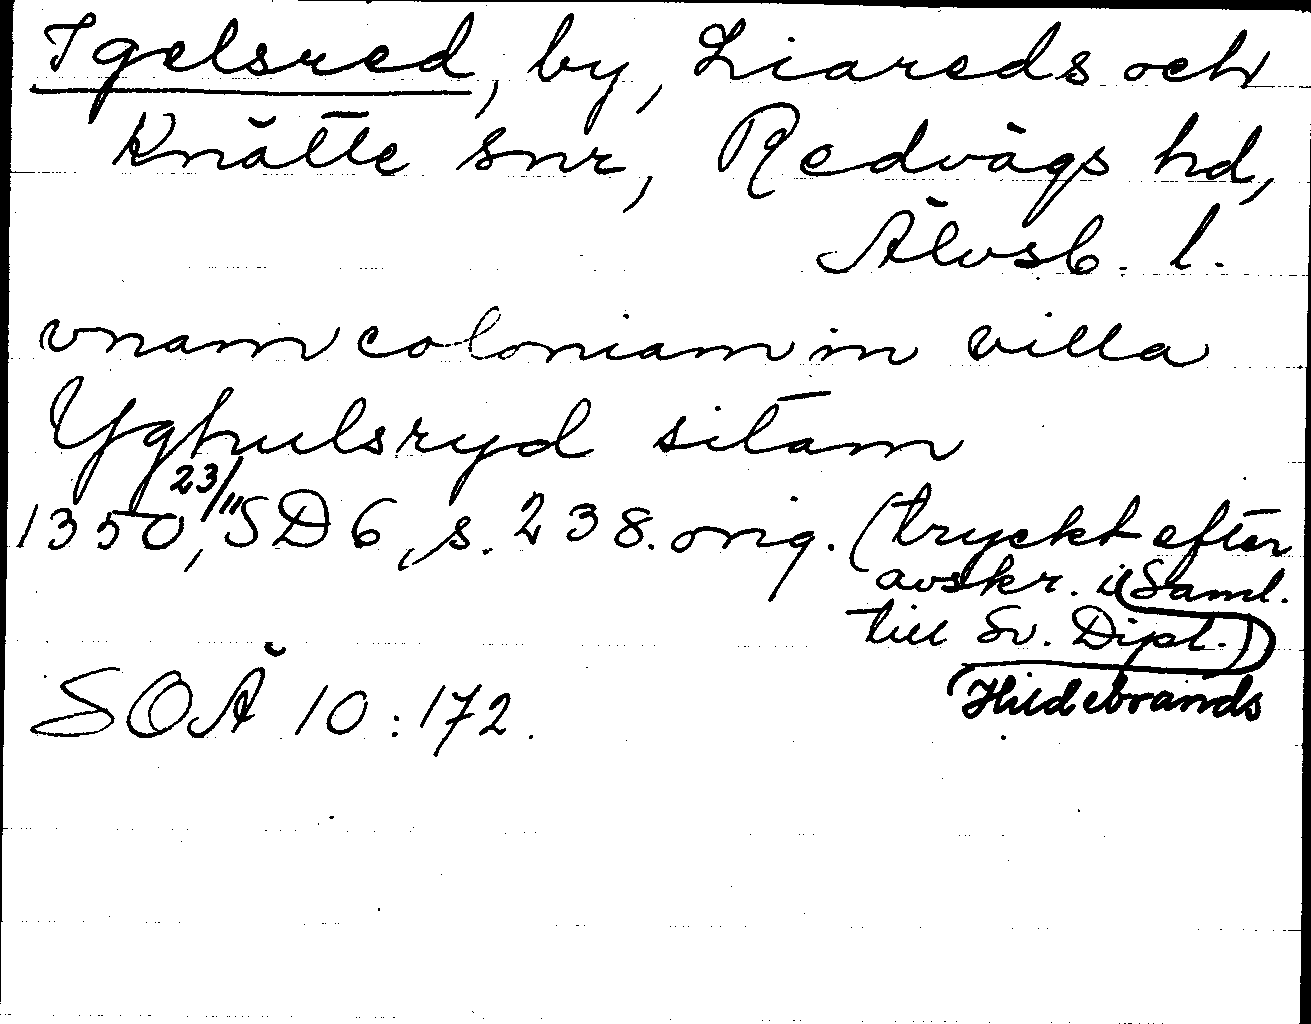 Igelsred, by, Liareds och
Knätte snr, Redvägs hd,
Älvsb. l.
vnam coloniam in villa
Yghulsryd sitam
1350, 23/11 SD 6, s. 238. orig. (tryckt efter
avskr. i (Saml.
till Sv. Dipl.)
(Hildebrands
SOÄ 10:172.